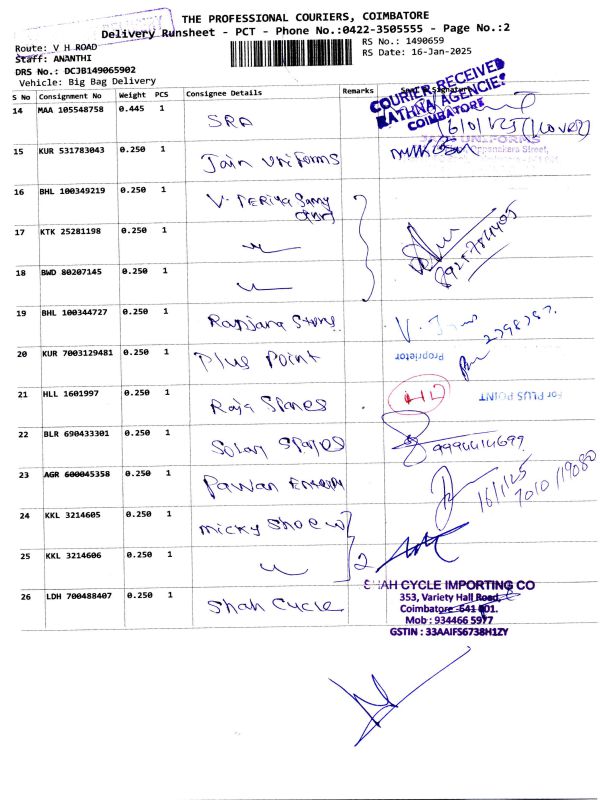 THE PROFESSIONAL COURIERS, COIMBATORE
Delivery Runsheet - PCT - Phone No.:0422-3505555 - Page No.:2
Route: V H ROAD
RS No.: 1490659
Staff: ANANTHI
RS Date: 16-Jan-2025
DRS No.: DCJB149065902
Vehicle: Big Bag Delivery
S No Consignment No Weight PCS Consignee Details Remarks
COURIER RECEIVED
RATHNA AGENCIES
COIMBATORE
14 MAA 105548758 0.445 1 SRA
15 KUR 531783043 0.250 1 Jain Uniforms
16 BHL 100349219 0.250 1 V. Periya Samy
17 KTK 25281198 0.250 1 〃
18 BWD 80207145 0.250 1 〃
19 BHL 100344727 0.250 1 Ranjana Stores
20 KUR 7003129481 0.250 1 Plus Point
Proprietor
21 HLL 1601997 0.250 1 Raja Spares
For PLUS POINT
22 BLR 690433301 0.250 1 Solan Spares
23 AGR 600045358 0.250 1 Pawan
16/1/25
24 KKL 3214605 0.250 1 Micky Shoe
25 KKL 3214606 0.250 1 〃 2
26 LDH 700488407 0.250 1 Shah Cycle
SHAH CYCLE IMPORTING CO
353, Variety Hall Road,
Coimbatore - 641 001.
Mob : 934466 5977
GSTIN : 33AAIFS6738H1ZY